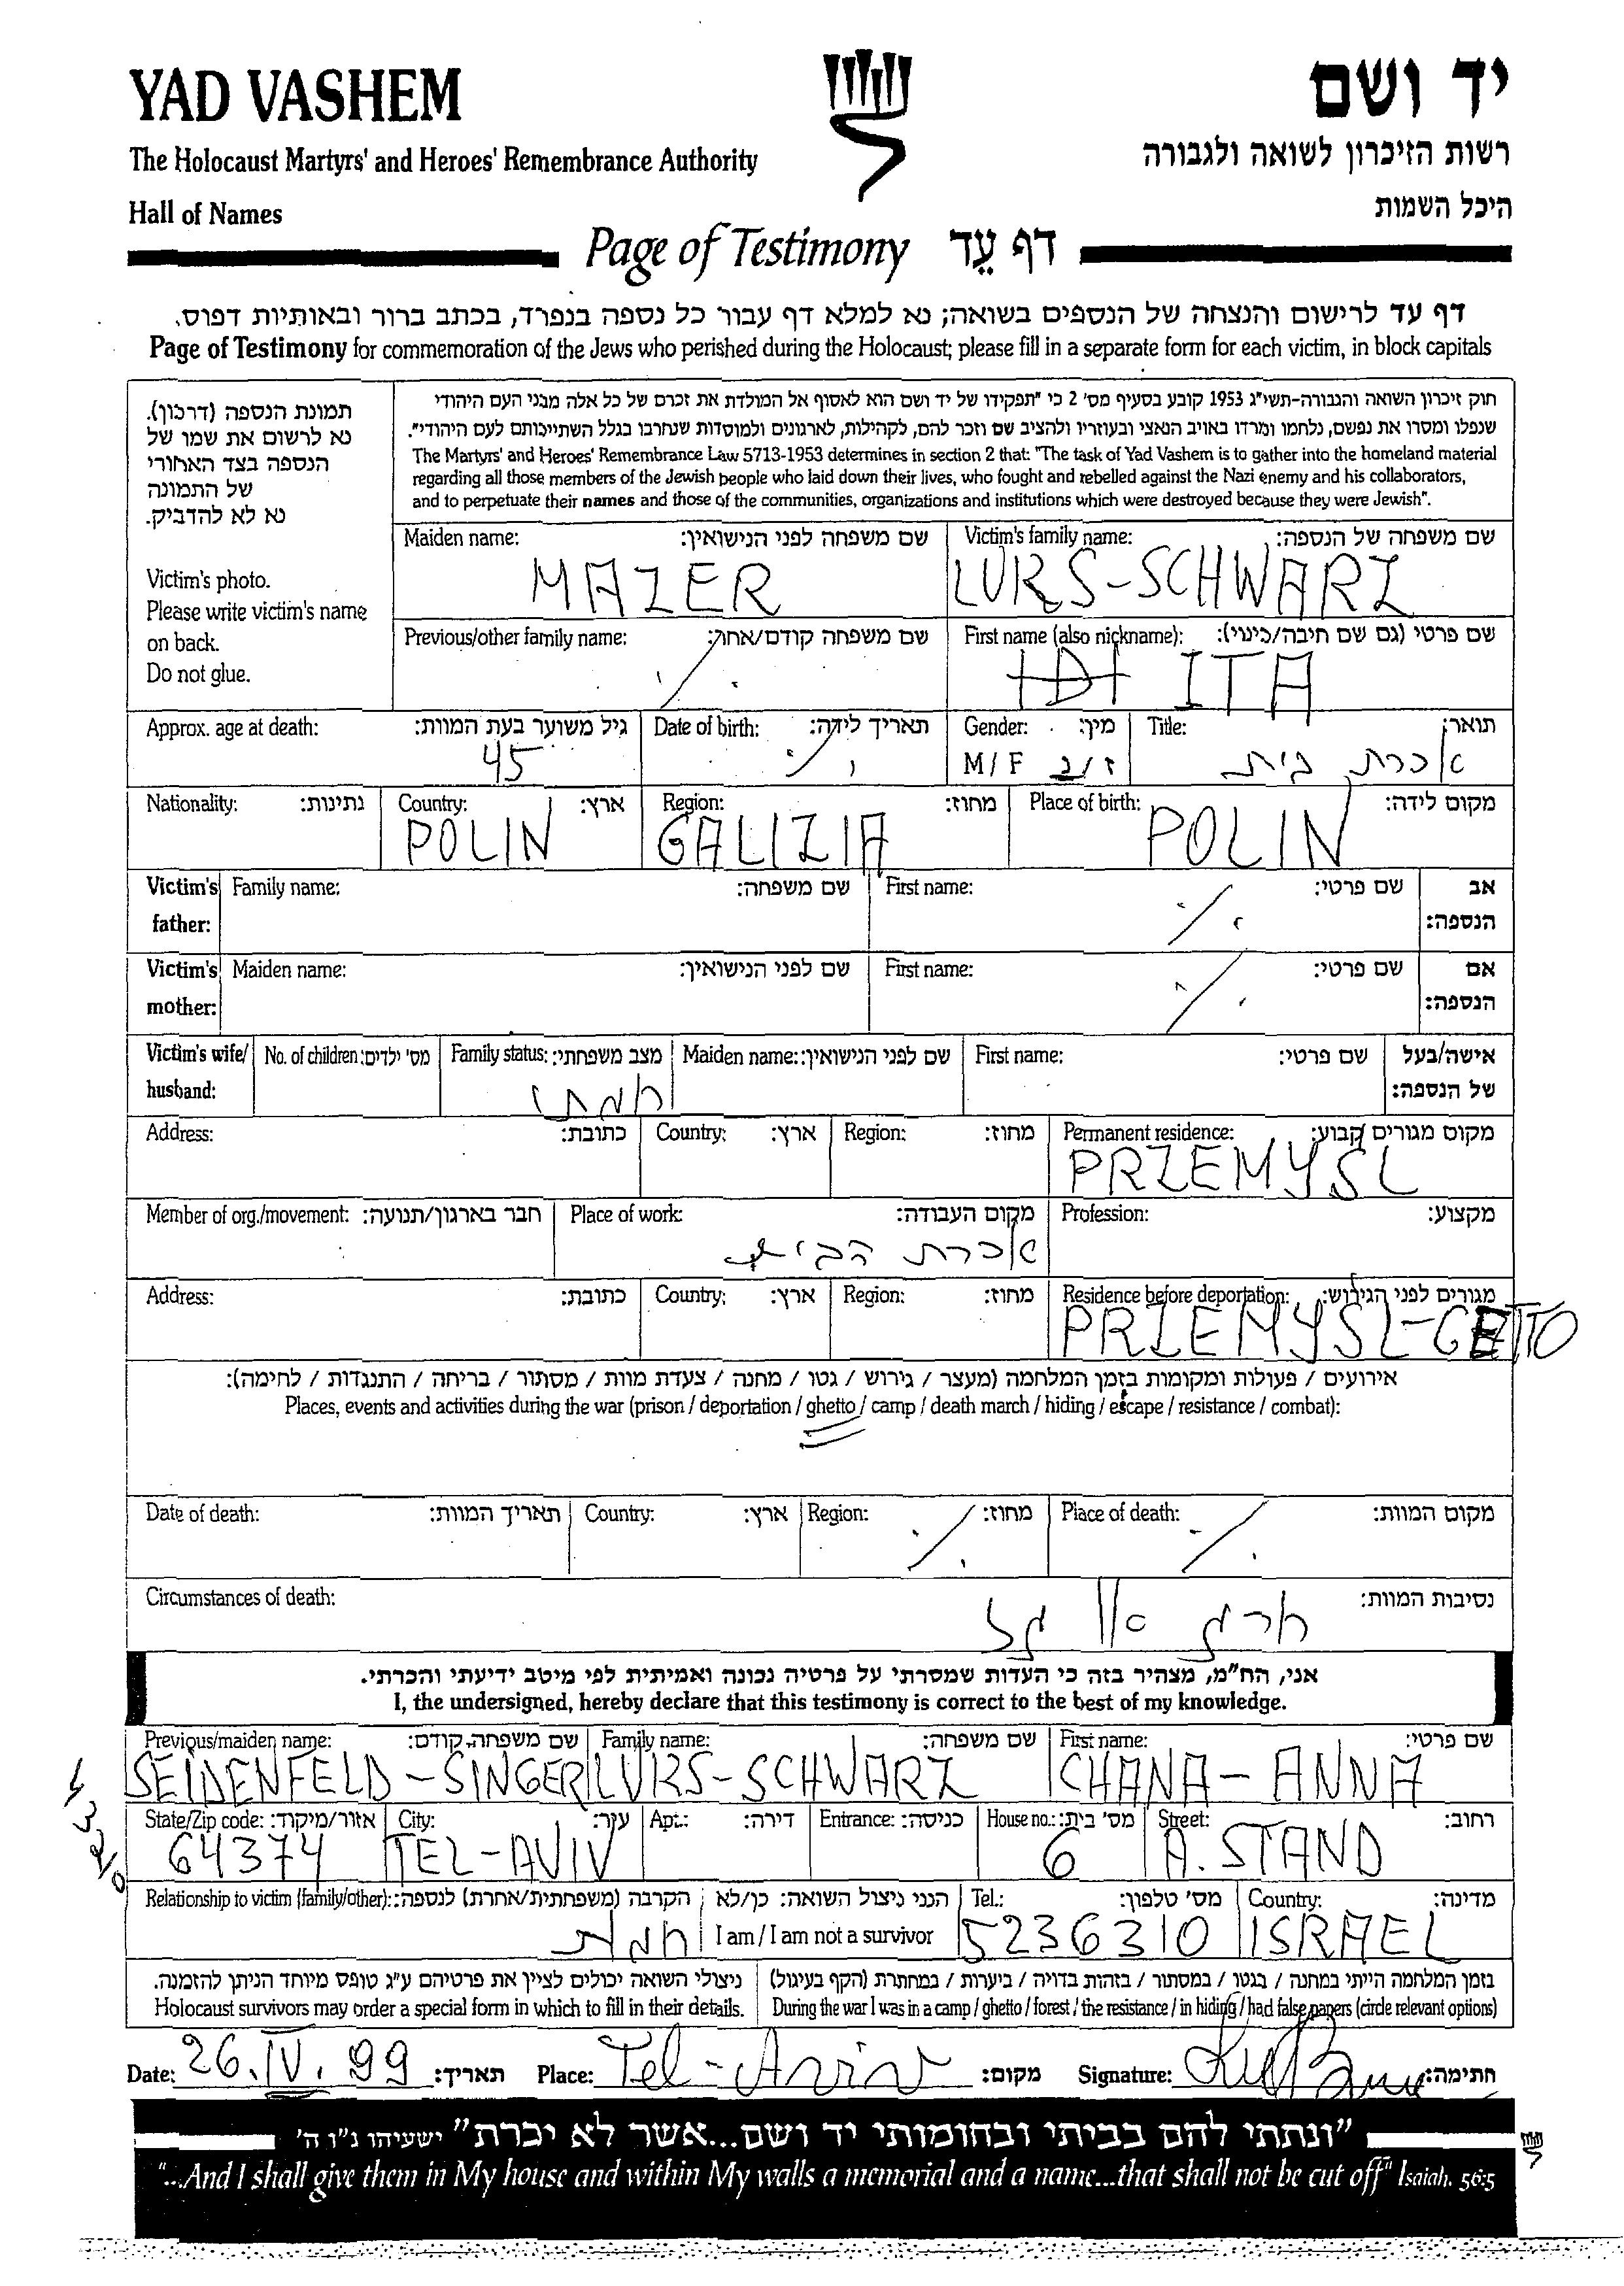 YAD VASHEM
יד ושם
The Holocaust Martyrs' and Heroes' Remembrance Authority
רשות הזיכרון לשואה ולגבורה
Hall of Names
היכל השמות
Page of Testimony דף עֵד
דף עד לרישום והנצחה של הנספים בשואה; נא למלא דף עבור כל נספה בנפרד, בכתב ברור ובאותיות דפוס.
Page of Testimony for commemoration of the Jews who perished during the Holocaust; please fill in a separate form for each victim, in block capitals
תמונת הנספה (דרכון).
נא לרשום את שמו של
הנספה בצד האחורי
של התמונה
נא לא להדביק.
Victim's photo.
Please write victim's name
on back.
Do not glue.
חוק זיכרון השואה והגבורה-תשי"ג 1953 קובע בסעיף מס' 2 כי "תפקידו של יד ושם הוא לאסוף אל המולדת את זכרם של כל אלה מבני העם היהודי
שנפלו ומסרו את נפשם, נלחמו ומרדו באויב הנאצי ובעוזריו ולהציב שם וזכר להם, לקהילות, לארגונים ולמוסדות שנחרבו בגלל השתייכותם לעם היהודי".
The Martyrs' and Heroes' Remembrance Law 5713-1953 determines in section 2 that: "The task of Yad Vashem is to gather into the homeland material
regarding all those members of the Jewish people who laid down their lives, who fought and rebelled against the Nazi enemy and his collaborators,
and to perpetuate their names and those of the communities, organizations and institutions which were destroyed because they were Jewish".
Maiden name: שם משפחה לפני הנישואין: Victim's family name: שם משפחה של הנספה:
MAZER LURS-SCHWARZ
Previous/other family name: שם משפחה קודם/אחר: First name (also nickname): שם פרטי (גם שם חיבה/כינוי):
ITA
Approx. age at death: גיל משוער בעת המוות: Date of birth: תאריך לידה: Gender: מין: Title: תואר:
45 M/F ז/נ עקרת בית
Nationality: נתינות: Country: ארץ: Region: מחוז: Place of birth: מקום לידה:
POLIN GALIZIA POLIN
Victim's father: Family name: שם משפחה: First name: שם פרטי: אב הנספה:
Victim's mother: Maiden name: שם לפני הנישואין: First name: שם פרטי: אם הנספה:
Victim's wife/ husband: No. of children: מס' ילדים: Family status: מצב משפחתי: Maiden name: שם לפני הנישואין: First name: שם פרטי: אישה/בעל של הנספה:
Address: כתובת: Country: ארץ: Region: מחוז: Permanent residence: מקום מגורים קבוע:
PRZEMYSL
Member of org./movement: חבר בארגון/תנועה: Place of work: מקום העבודה: Profession: מקצוע:
עקרת הבית
Address: כתובת: Country: ארץ: Region: מחוז: Residence before deportation: מגורים לפני הגירוש:
PRZEMYSL-GETTO
אירועים / פעולות ומקומות בזמן המלחמה (מעצר / גירוש / גטו / מחנה / צעדת מוות / מסתור / בריחה / התנגדות / לחימה):
Places, events and activities during the war (prison / deportation / ghetto / camp / death march / hiding / escape / resistance / combat):
Date of death: תאריך המוות: Country: ארץ: Region: מחוז: Place of death: מקום המוות:
Circumstances of death: נסיבות המוות:
אני, הח"מ, מצהיר בזה כי העדות שמסרתי על פרטיה נכונה ואמיתית לפי מיטב ידיעתי והכרתי.
I, the undersigned, hereby declare that this testimony is correct to the best of my knowledge.
Previous/maiden name: שם משפחה קודם: Family name: שם משפחה: First name: שם פרטי:
SEIDENFELD-SINGER LURS-SCHWARZ CHANA-ANNA
State/Zip code: אזור/מיקוד: City: עיר: Apt.: דירה: Entrance: כניסה: House no.: מס' בית: Street: רחוב:
64374 TEL-AVIV 6 A. STAND
Relationship to victim (family/other): הקרבה (משפחתית/אחרת) לנספה: הנני ניצול השואה: כן/לא Tel.: מס' טלפון: Country: מדינה:
I am / I am not a survivor 5236310 ISRAEL
ניצולי השואה יכולים לציין את פרטיהם ע"ג טופס מיוחד הניתן להזמנה.
Holocaust survivors may order a special form in which to fill in their details.
בזמן המלחמה הייתי במחנה / בגטו / במסתור / בזהות בדויה / ביערות / במחתרת (הקף בעיגול)
During the war I was in a camp / ghetto / forest / the resistance / in hiding / had false papers (circle relevant options)
Date: 26.IV.99 תאריך: Place: Tel-Aviv מקום: Signature: חתימה:
"ונתתי להם בביתי ובחומותי יד ושם...אשר לא יכרת" ישעיהו נ"ו ה'
"...And I shall give them in My house and within My walls a memorial and a name...that shall not be cut off" Isaiah. 56:5